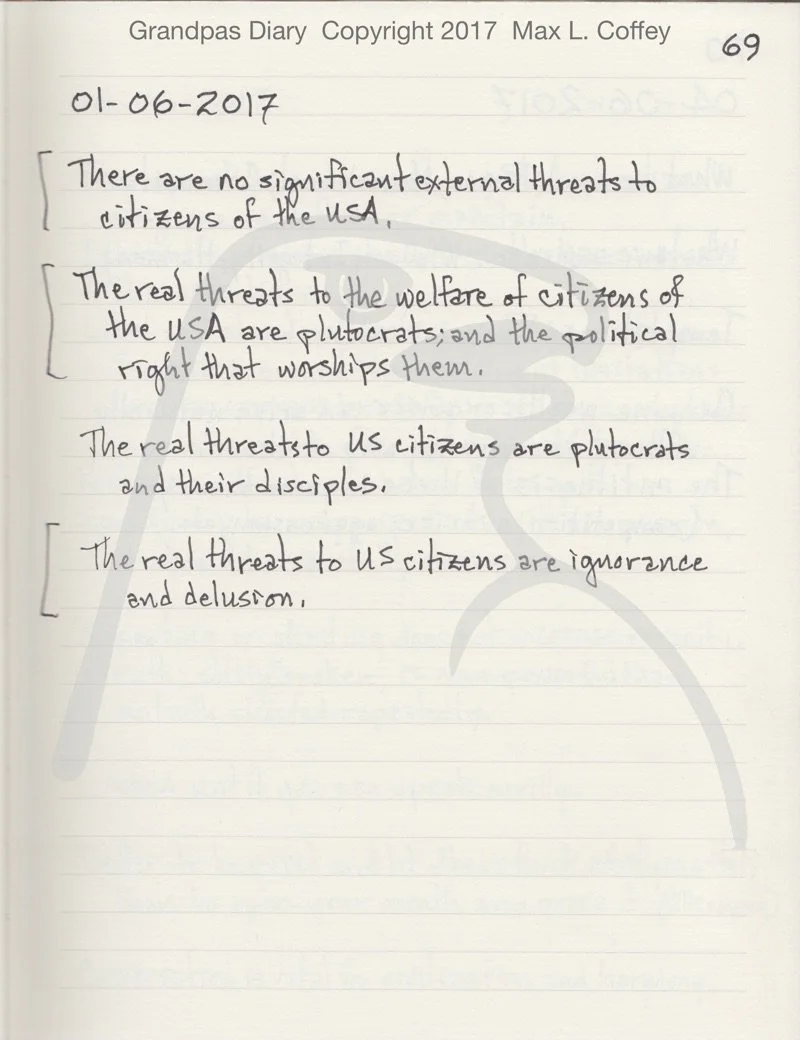 Grandpas Diary Copyright 2017 Max L. Coffey
69
01-06-2017
There are no significant external threats to
citizens of the USA.
The real threats to the welfare of citizens of
the USA are plutocrats; and the political
right that worships them.
The real threats to US citizens are plutocrats
and their disciples.
The real threats to US citizens are ignorance
and delusion.